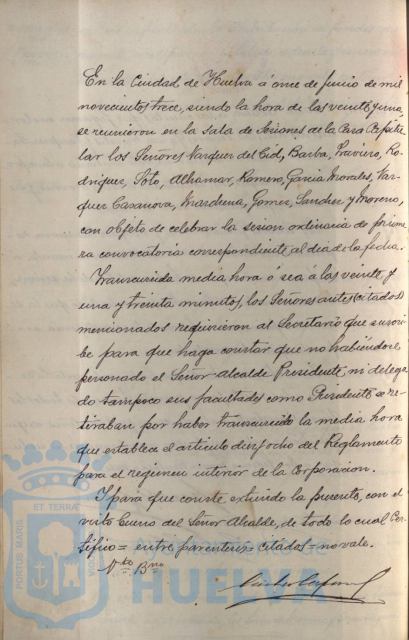 En la Ciudad de Huelva á once de Junio de mil
novecientos trece, siendo la hora de las veinte y una,
se reunieron en la sala de Sesiones de la Casa Capitu
lar los Señores Vazquez del Cid, Barba, Traviño, Ro-
driguez, Soto, Alhamar, Romero, Garcia Morales, Vaz-
quez Casanova, Mardema, Gomez, Sanchez y Moreno,
con objeto de celebrar la sesion ordinaria de prime
ra convocatoria correspondiente al dia de la fecha.
Transcurrida media hora ó sea á las veinte y
una y treinta minutos, los Señores antes (citados)
mencionados requirieron al Secretario que suscri
be para que haga constar que no habiéndose
personado el Señor Alcalde Presidente, ni delega
do tampoco sus facultades como Presidente se re-
tiraban por haber transcurrido la media hora
que establece el artículo diez y ocho del Reglamento
para el regimen interior de la Corporacion.
Y para que conste, extiendo la presente, con el
visto bueno del Señor Alcalde, de todo lo cual Cer-
tifico = entre parentesis = citados = no vale.
Vto Bno
ET TERRA
PORTUS MARIS
HUELVA